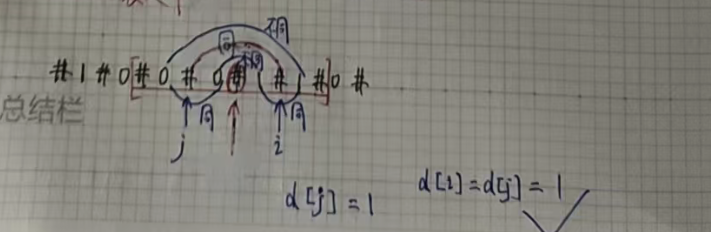 不同
同
不同
# 1 # 0 [ # 0 # 0 # # # ] 0 #
总结栏
同 同
j i
d[j] = 1
d[i] = d[j] = 1